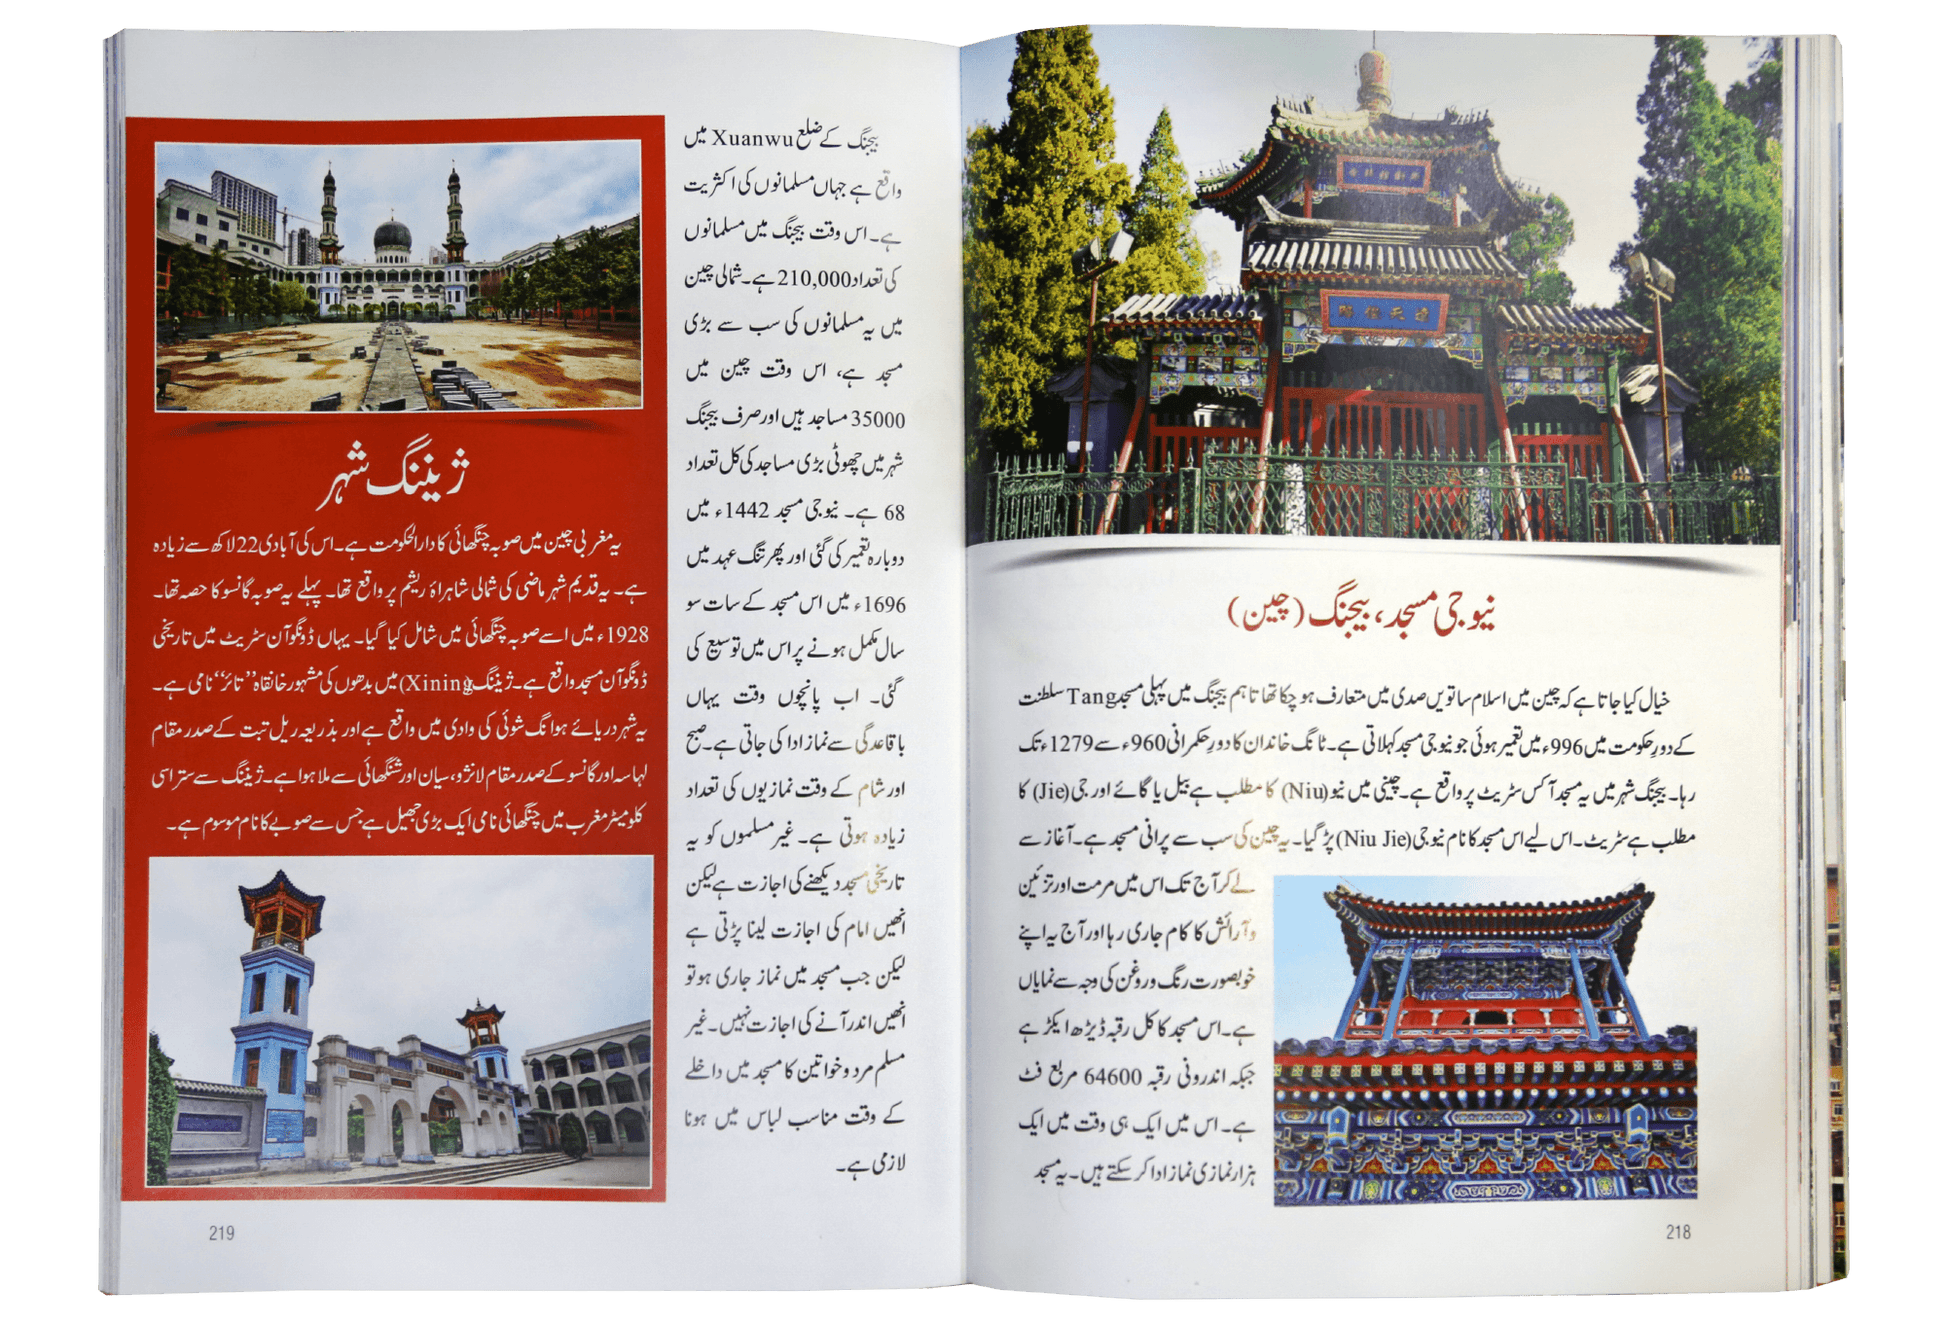 نیو جی مسجد، بیجنگ (چین)
خیال کیا جاتا ہے کہ چین میں اسلام ساتویں صدی میں متعارف ہو چکا تھا تاہم بیجنگ میں پہلی مسجد Tang سلطنت
کے دورِ حکومت میں 996ء میں تعمیر ہوئی جو نیو جی مسجد کہلاتی ہے۔ ٹانگ خاندان کا دورِ حکمرانی 960ء سے 1279ء تک
رہا۔ بیجنگ شہر میں یہ مسجد آکس سٹریٹ پر واقع ہے۔ چینی میں نیو (Niu) کا مطلب ہے بیل یا گائے اور جی (Jie) کا
مطلب ہے سٹریٹ۔ اس لیے اس مسجد کا نام نیو جی (Niu Jie) پڑ گیا۔ یہ چین کی سب سے پرانی مسجد ہے۔ آغاز سے
لے کر آج تک اس میں مرمت اور تزئین
و آرائش کا کام جاری رہا اور آج یہ اپنے
خوبصورت رنگ و روغن کی وجہ سے نمایاں
ہے۔ اس مسجد کا کل رقبہ ڈیڑھ ایکڑ ہے
جبکہ اندرونی رقبہ 64600 مربع فٹ
ہے۔ اس میں ایک ہی وقت میں ایک
ہزار نمازی نماز ادا کر سکتے ہیں۔ یہ مسجد
218
بیجنگ کے ضلع Xuanwu میں
واقع ہے جہاں مسلمانوں کی اکثریت
ہے۔ اس وقت بیجنگ میں مسلمانوں
کی تعداد 210,000 ہے۔ شمالی چین
میں یہ مسلمانوں کی سب سے بڑی
مسجد ہے، اس وقت چین میں
35000 مساجد ہیں اور صرف بیجنگ
شہر میں چھوٹی بڑی مساجد کی کل تعداد
68 ہے۔ نیو جی مسجد 1442ء میں
دوبارہ تعمیر کی گئی اور پھر تنگ عہد میں
1696ء میں اس مسجد کے سات سو
سال مکمل ہونے پر اس میں توسیع کی
گئی۔ اب پانچوں وقت یہاں
باقاعدگی سے نماز ادا کی جاتی ہے۔ صبح
اور شام کے وقت نمازیوں کی تعداد
زیادہ ہوتی ہے۔ غیر مسلموں کو یہ
تاریخی مسجد دیکھنے کی اجازت ہے لیکن
انھیں امام کی اجازت لینا پڑتی ہے
لیکن جب مسجد میں نماز جاری ہو تو
انھیں اندر آنے کی اجازت نہیں۔ غیر
مسلم مرد و خواتین کا مسجد میں داخلے
کے وقت مناسب لباس میں ہونا
لازمی ہے۔
ژیننگ شہر
یہ مغربی چین میں صوبہ چنگھائی کا دارالحکومت ہے۔ اس کی آبادی 22 لاکھ سے زیادہ
ہے۔ یہ قدیم شہر ماضی کی شمالی شاہراہ ریشم پر واقع تھا۔ پہلے یہ صوبہ گانسو کا حصہ تھا۔
1928ء میں اسے صوبہ چنگھائی میں شامل کیا گیا۔ یہاں ڈونگوآن سٹریٹ میں تاریخی
ڈونگوآن مسجد واقع ہے۔ ژیننگ (Xining) میں بدھوں کی مشہور خانقاہ ”تائر“ نامی ہے۔
یہ شہر دریائے ہوانگ شوئی کی وادی میں واقع ہے اور بذریعہ ریل تبت کے صدر مقام
لہاسہ اور گانسو کے صدر مقام لانژو، سیان اور شنگھائی سے ملا ہوا ہے۔ ژیننگ سے ستر اسی
کلومیٹر مغرب میں چنگھائی نامی ایک بڑی جھیل ہے جس سے صوبے کا نام موسوم ہے۔
219